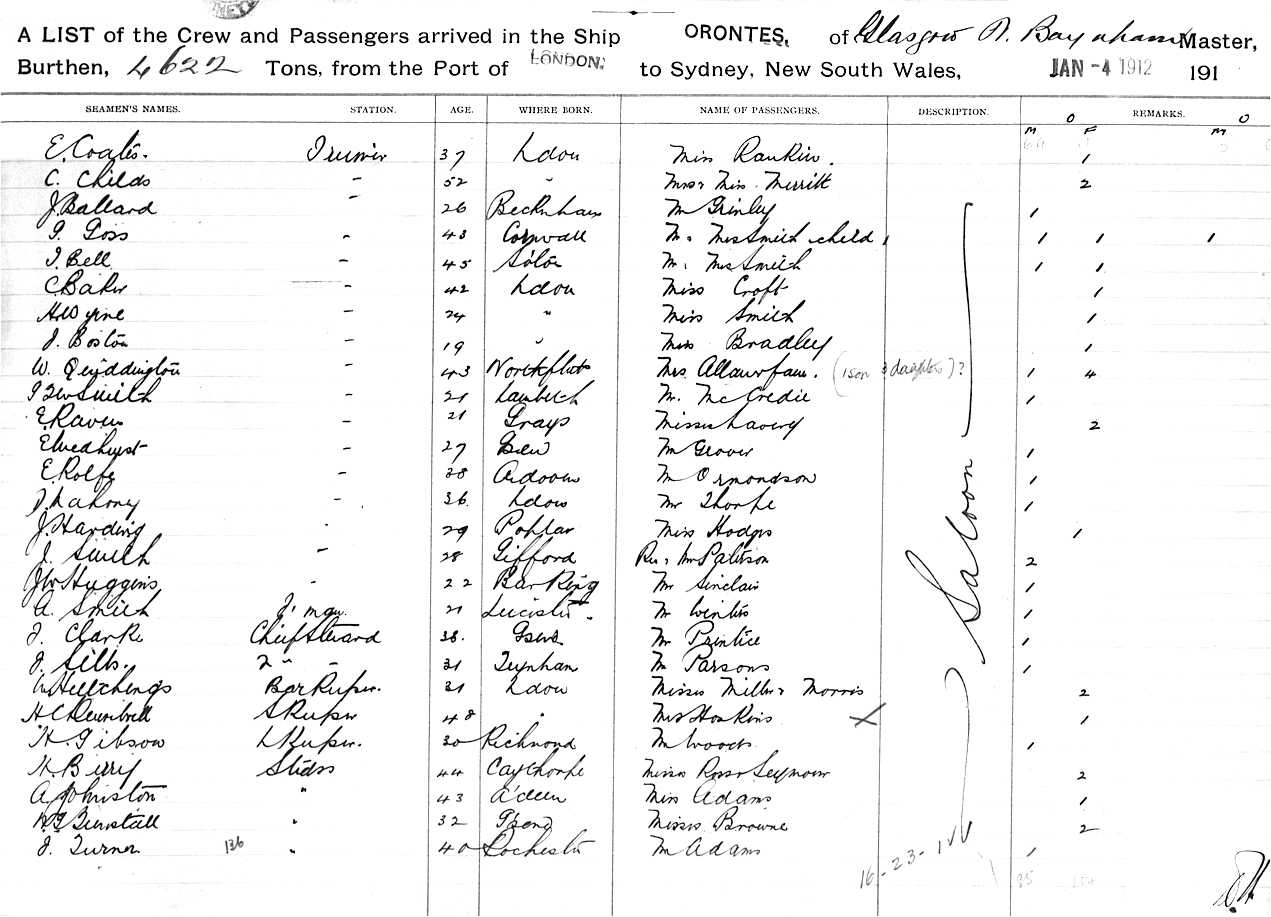 A LIST of the Crew and Passengers arrived in the Ship ORONTES, of Glasgow A. Baynham Master,
Burthen, 4622 Tons, from the Port of LONDON. to Sydney, New South Wales, JAN -4 1912 191
SEAMEN'S NAMES. STATION. AGE. WHERE BORN. NAME OF PASSENGERS. DESCRIPTION. REMARKS.
O
M F M O
E. Coates. Trimmer 37 Ldon Miss Rankin. 1
C. Childs - 52 " Mrs & Miss Merritt 2
J Ballard - 26 Becknham M Grinley 1
Goss - 43 Cornwall M. Mrs Smith child 1 1 1 1
Bell - 45 M. Mrs Smith 1 1
C Baker - 42 Ldon Miss Croft 1
- 24 " Miss Smith 1
J. Boston - 19 " Miss Bradley 1
W. Quiddington - 43 Northfleet Mrs fam. (1 son 3 daughters)? 1 4
Smith - 21 Lambeth Mr. McCredie 1
E Raven - 21 Grays Misses Lavery 2
E Medhurst - 27 M Grover 1
E. Rolfe - 38 M Ormondson 1
Mahony - 36 Ldon Mr Thorpe 1
J. Harding - 29 Poplar Miss Hodges 1
J. Smith - 28 Gifford Rev & Mr Paterson 2
J W Huggins - 22 Barking Mr Sinclair 1
Saloon
A. Smith 21 Leicester. M Winter 1
J. Clarke Chief Steward 38. Gsend Mr Prentice 1
J. Sills. 2 " - 31 Teynham M Parsons 1
Hutchings Bar Kuper. 31 Ldon Misses Miller & Morris 2
H C S Kuper 48 " Mrs Hoskins X 1
H. Gibson L Kuper. 30 Richmond M Woods 1
H. Berry Stdss 44 Caythorpe Misses Ross & Seymour 2
A Johnston " 43 A'deen Miss Adams 1
Tunstall " 32 Gsend Misses Browne 2
J. Turner 136 " 40 Rochester M Adams 1
16 - 23 - 1